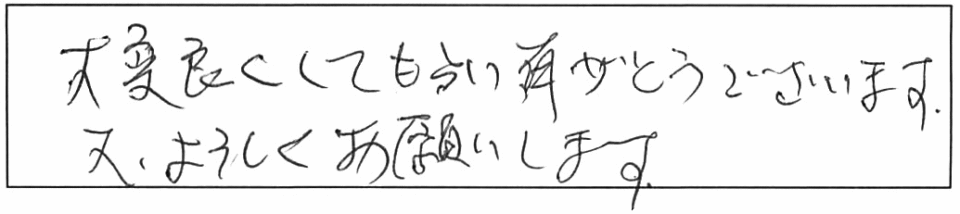 大変良くしてもらい有がとうございます。
又、よろしくお願いします。